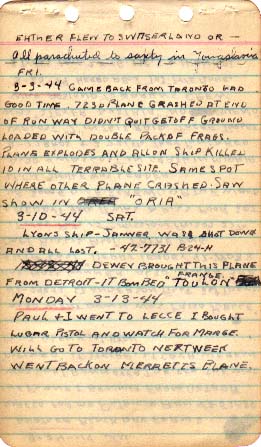 EITHER FLEW TO SWITSERLAND OR —
All parachuted to safety in Yougslavia
FRI.
3-3-44 CAME BACK FROM TARONTO HAD
GOOD TIME. 723d PLANE CRASHED AT END
OF RUN WAY DIDN'T QUIT GET OFF GROUND
LOADED WITH DOUBLE PACK OF FRAGS.
PLANE EXPLODES AND ALL ON SHIP KILLED
10 IN ALL TERRABLE SITE. SAME SPOT
WHERE OTHER PLANE CRASHED. SAW
SHOW IN "ORIA"
3-10-44 SAT.
LYONS SHIP - WAS SHOT DOWN
AND ALL LOST. - 42-7731 B24-H
DEWEY BROUGHT THIS PLANE
FROM DETROIT - IT BOMBED "TOULON" FRANCE
MONDAY 3-13-44
PAUL + I WENT TO LECCE I BOUGHT
LUGAR PISTOL AND WATCH FOR MARGE.
WILL GO TO TORONTO NEXT WEEK
WENT BACK ON MERRETTS PLANE.